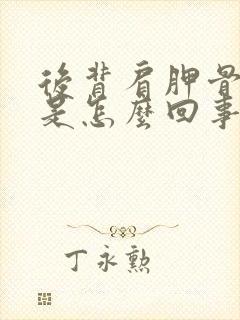 後背肩胛骨
是怎麼回事
丁永勲